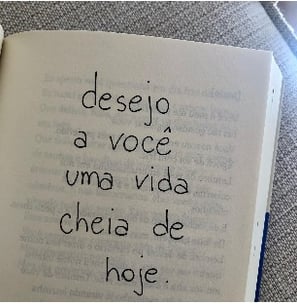 desejo
a você
uma vida
cheia de
hoje.